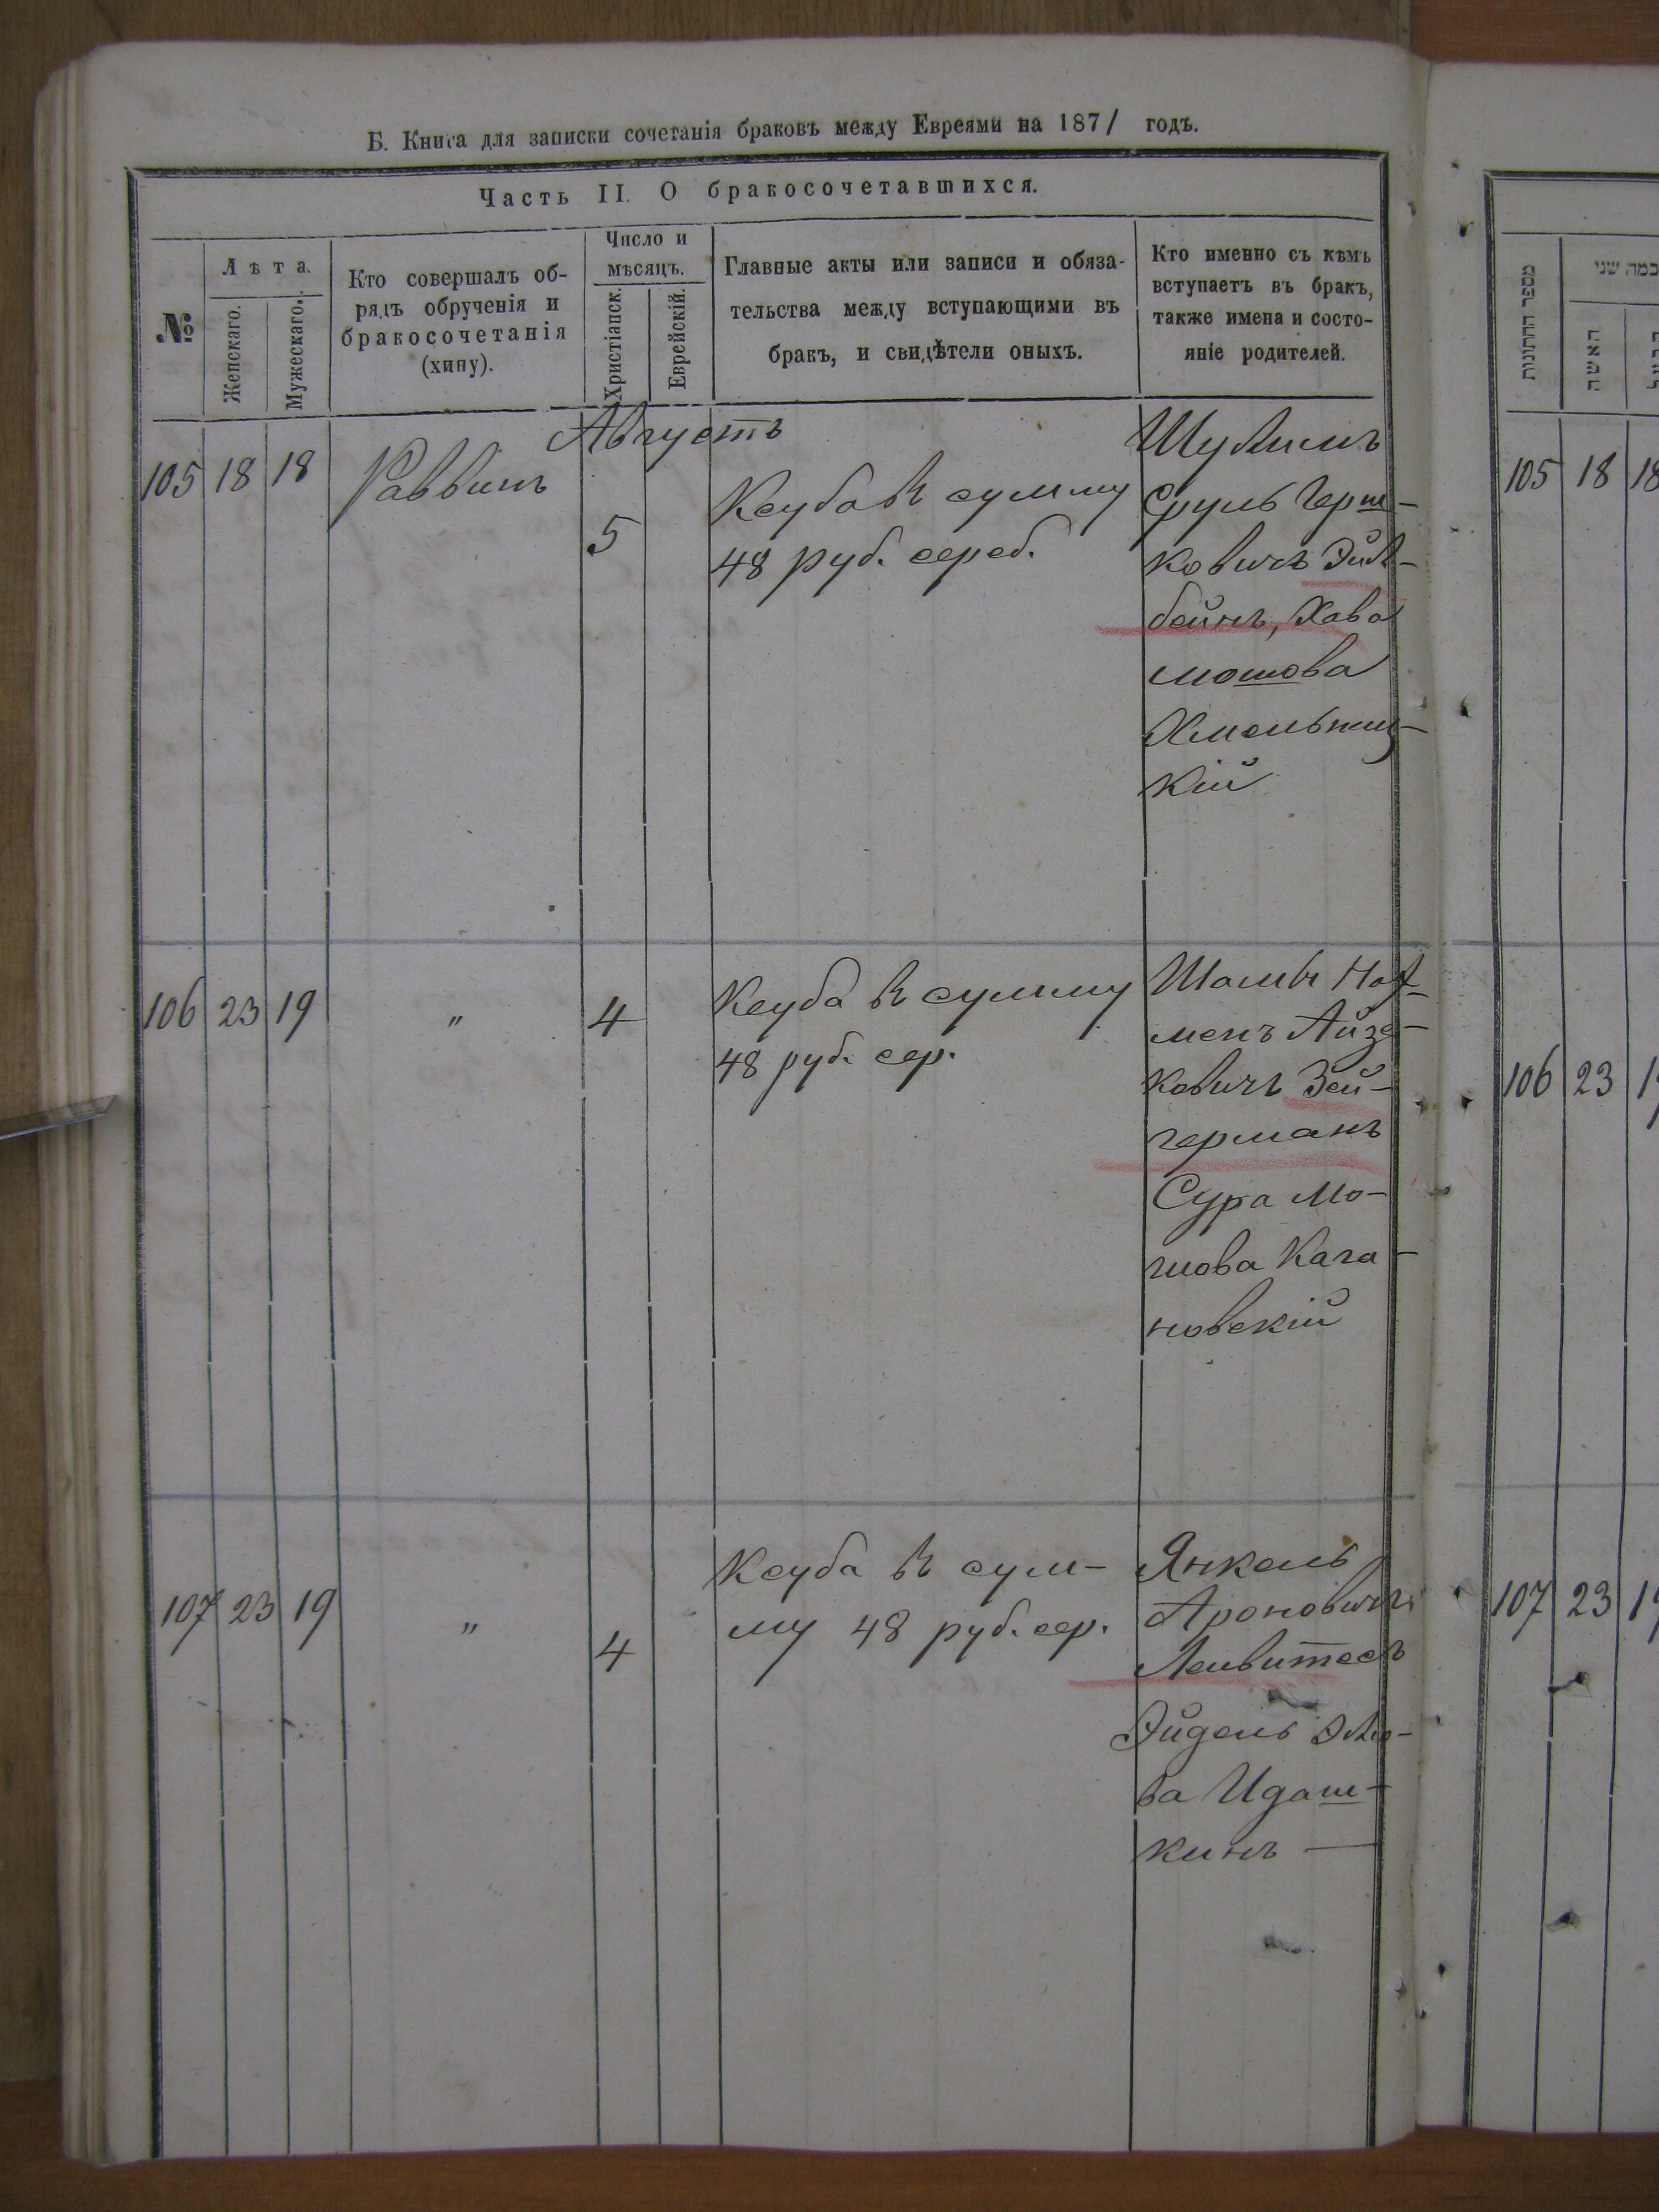 Б. Книга для записки сочетанія браковъ между Евреями на 1871 годъ.
Часть II. О бракосочетавшихся.
№
Лѣта.
Женскаго.
Мужескаго.
Кто совершалъ об-
рядъ обрученія и
бракосочетанія
(хипу).
Число и
мѣсяцъ.
Христіанск.
Еврейскій.
Главные акты или записи и обяза-
тельства между вступающими въ
бракъ, и свидѣтели оныхъ.
Кто именно съ кѣмъ
вступаетъ въ бракъ,
также имена и состо-
яніе родителей.
Августъ
105 18 18 Раввинъ
5
Ксуба въ сумму
48 руб. сереб.
Шулимъ
Сруль Герш-
ковичъ Эйл-
бейнъ, Хава
Мошова
Хмельниц-
кій
106 23 19 „ 4
Ксуба въ сумму
48 руб. сер.
менъ Айзе-
ковичъ Зей-
германъ
Сура Мо-
шова Кага-
новскій
107 23 19 „ 4
Ксуба въ сум-
му 48 руб. сер.
Янкель
Ароновичъ
Левитесъ
Эйдель
ва Идаш-
кинъ —
מספר החתונות
כמה שני
האשה
105 18 18
106 23
107 23